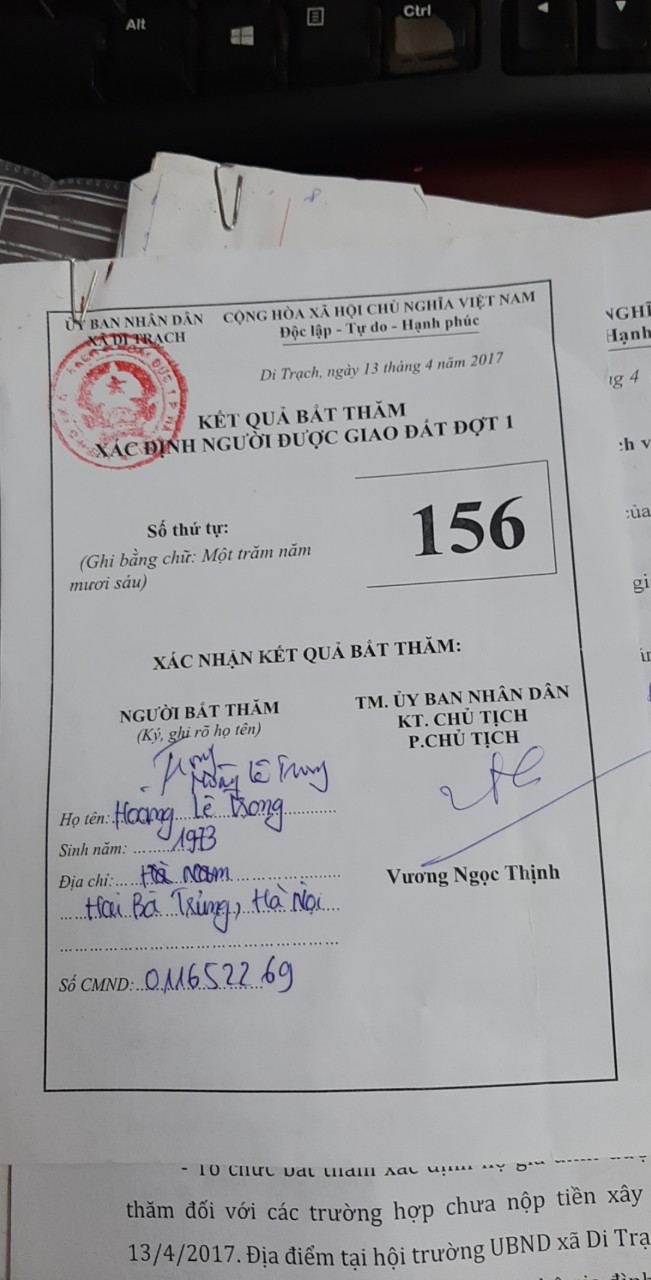 Alt
Ctrl
ỦY BAN NHÂN DÂN
XÃ DI TRẠCH
CỘNG HÒA XÃ HỘI CHỦ NGHĨA VIỆT NAM
Độc lập - Tự do - Hạnh phúc
Di Trạch, ngày 13 tháng 4 năm 2017
KẾT QUẢ BẮT THĂM
XÁC ĐỊNH NGƯỜI ĐƯỢC GIAO ĐẤT ĐỢT 1
Số thứ tự:
156
(Ghi bằng chữ: Một trăm năm
mươi sáu)
XÁC NHẬN KẾT QUẢ BẮT THĂM:
NGƯỜI BẮT THĂM
(Ký, ghi rõ họ tên)
Hoàng Lê Trung
Họ tên: Hoàng Lê Trong
Sinh năm: 1973
Địa chỉ:
Hai Bà Trưng, Hà Nội
Số CMND: 011652269
TM. ỦY BAN NHÂN DÂN
KT. CHỦ TỊCH
P.CHỦ TỊCH
Vương Ngọc Thịnh
NGHĨ
Hạnh
4
của
thăm đối với các trường hợp chưa nộp tiền xây
13/4/2017. Địa điểm tại hội trường UBND xã Di Trạ